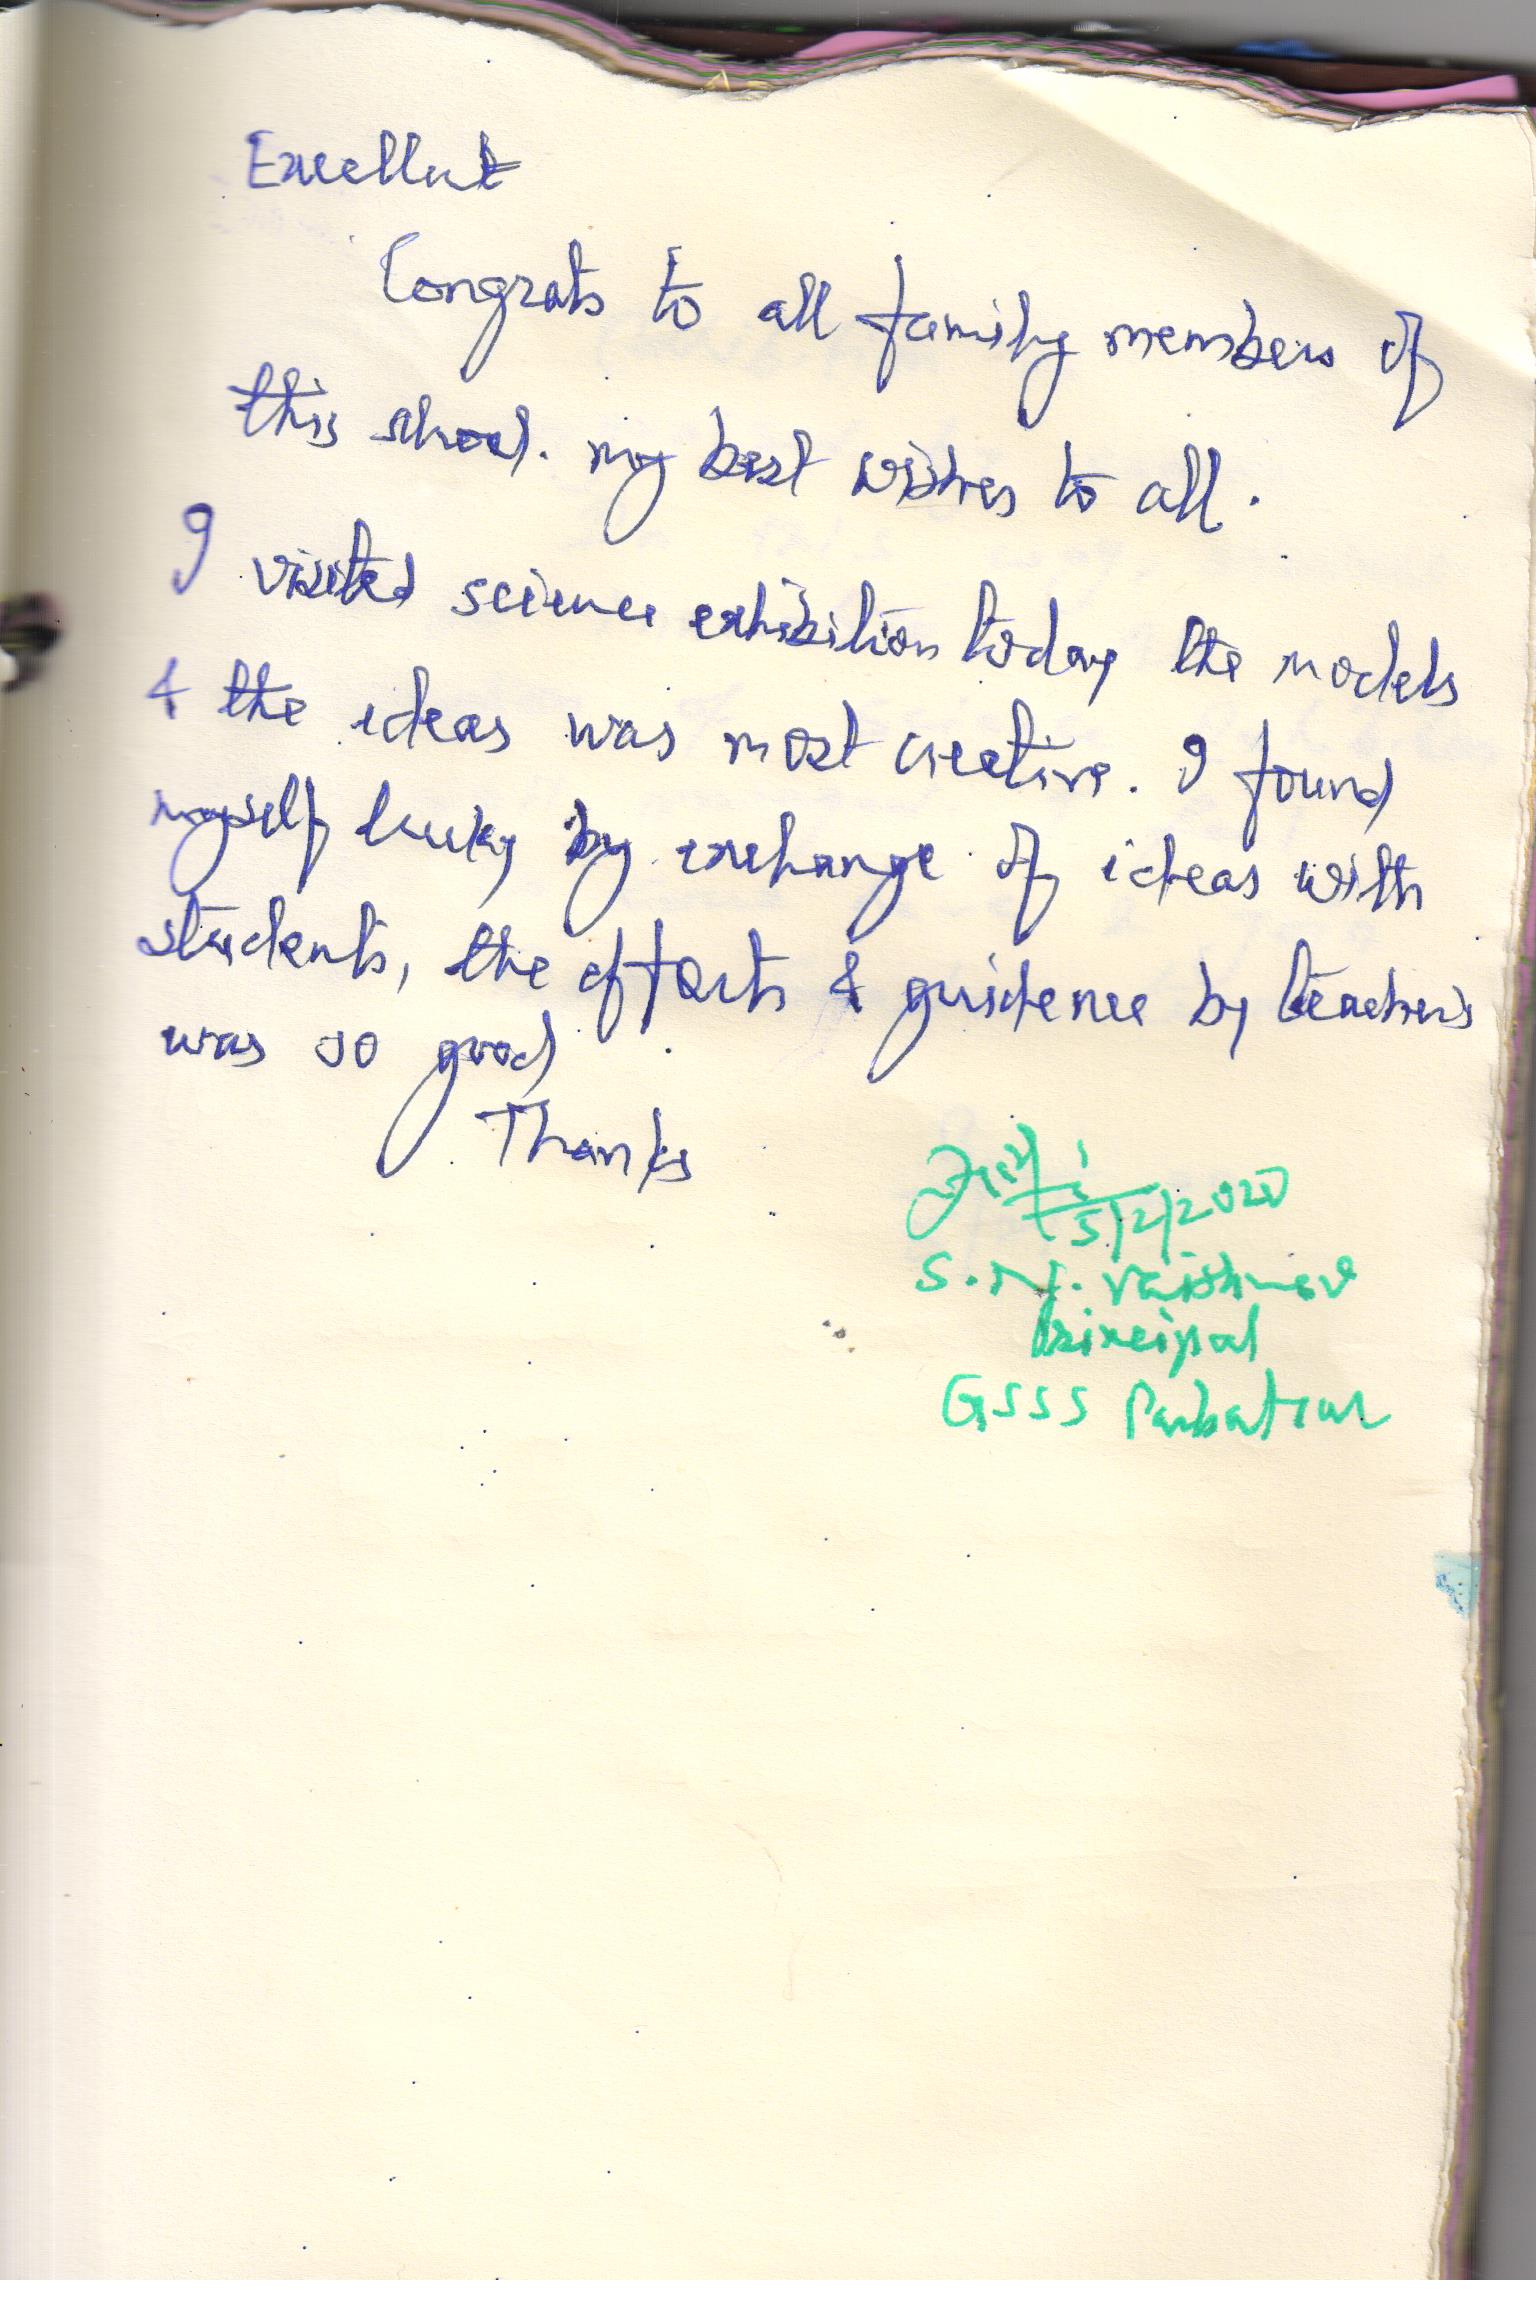 Excellent
Congrats to all family members of
this school. my best wishes to all.
I visited science exhibition today the models
& the ideas was most creative. I found
myself lucky by exchange of ideas with
students, the efforts & guidence by teachers
was so good
Thanks
5/2/2020
S.N. Vaishnav
Principal
GSSS Parbatsar